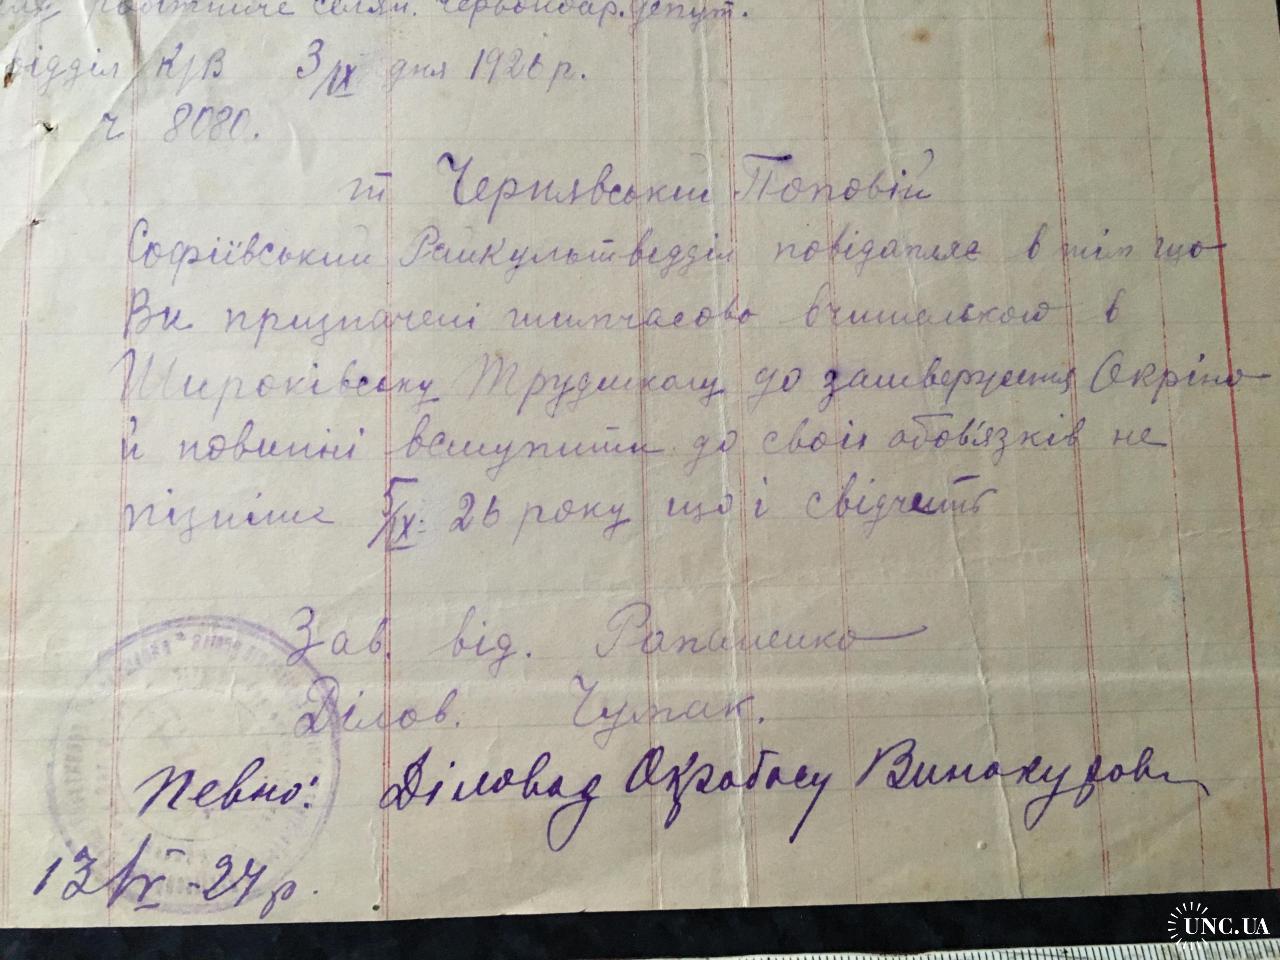 робітниче селян. червоноар. депут.
відділ К/В 3/IX дня 1926 р.
ч 8080.
т Чернявський Поповій
Софіївський Райкультвідділ повідамляє в тім що
Ви призначені тимчасово вчителькою в
Широківську Трудшколу до затвердження Окріно
й повинні вступити до своїх обов'язків не
пізніше 5/IX. 26 року що і свідчить
Зав. від. Рапаненко
Ділов. Чумак.
Певно: Діловод Окрабосу Винокуров
13/IX - 27 р.
UNC.UA